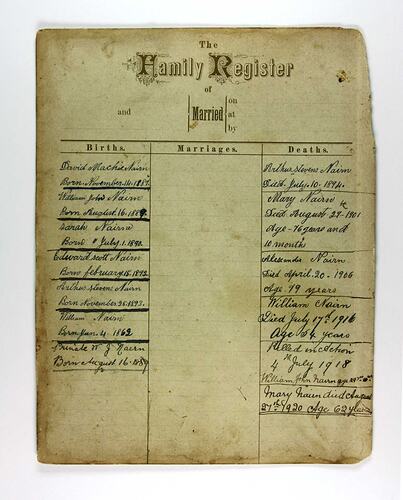 The
Family Register
of
and Married on
at
by
Births.
David Mackie Nairn
Born November 14. 1887.
William John Nairn
Born August. 16. 1889.
Sarah Nairn
Born " July. 1. 1890.
Edward Scott Nairn
Born february 15. 1892.
Arthur stevens Nairn
Born November 25. 1893.
William Nairn
Born Jan. 4. 1862
Private W J Nairn
Born August 16. 1889
Marriages.
Deaths.
Arthur stevens Nairn
Died July. 10. 1894.
Mary Nairn
Died August 27. 1901
Age - 76 years and
10 month
Alexander Nairn
Died April. 20 - 1906
Age 79 years
William Nairn
Died July 17th 1916
Age 54 years
Killed in action
4th July 1918
William John Nairn age
Mary Nairn died August
27th 1920 Age 62 years